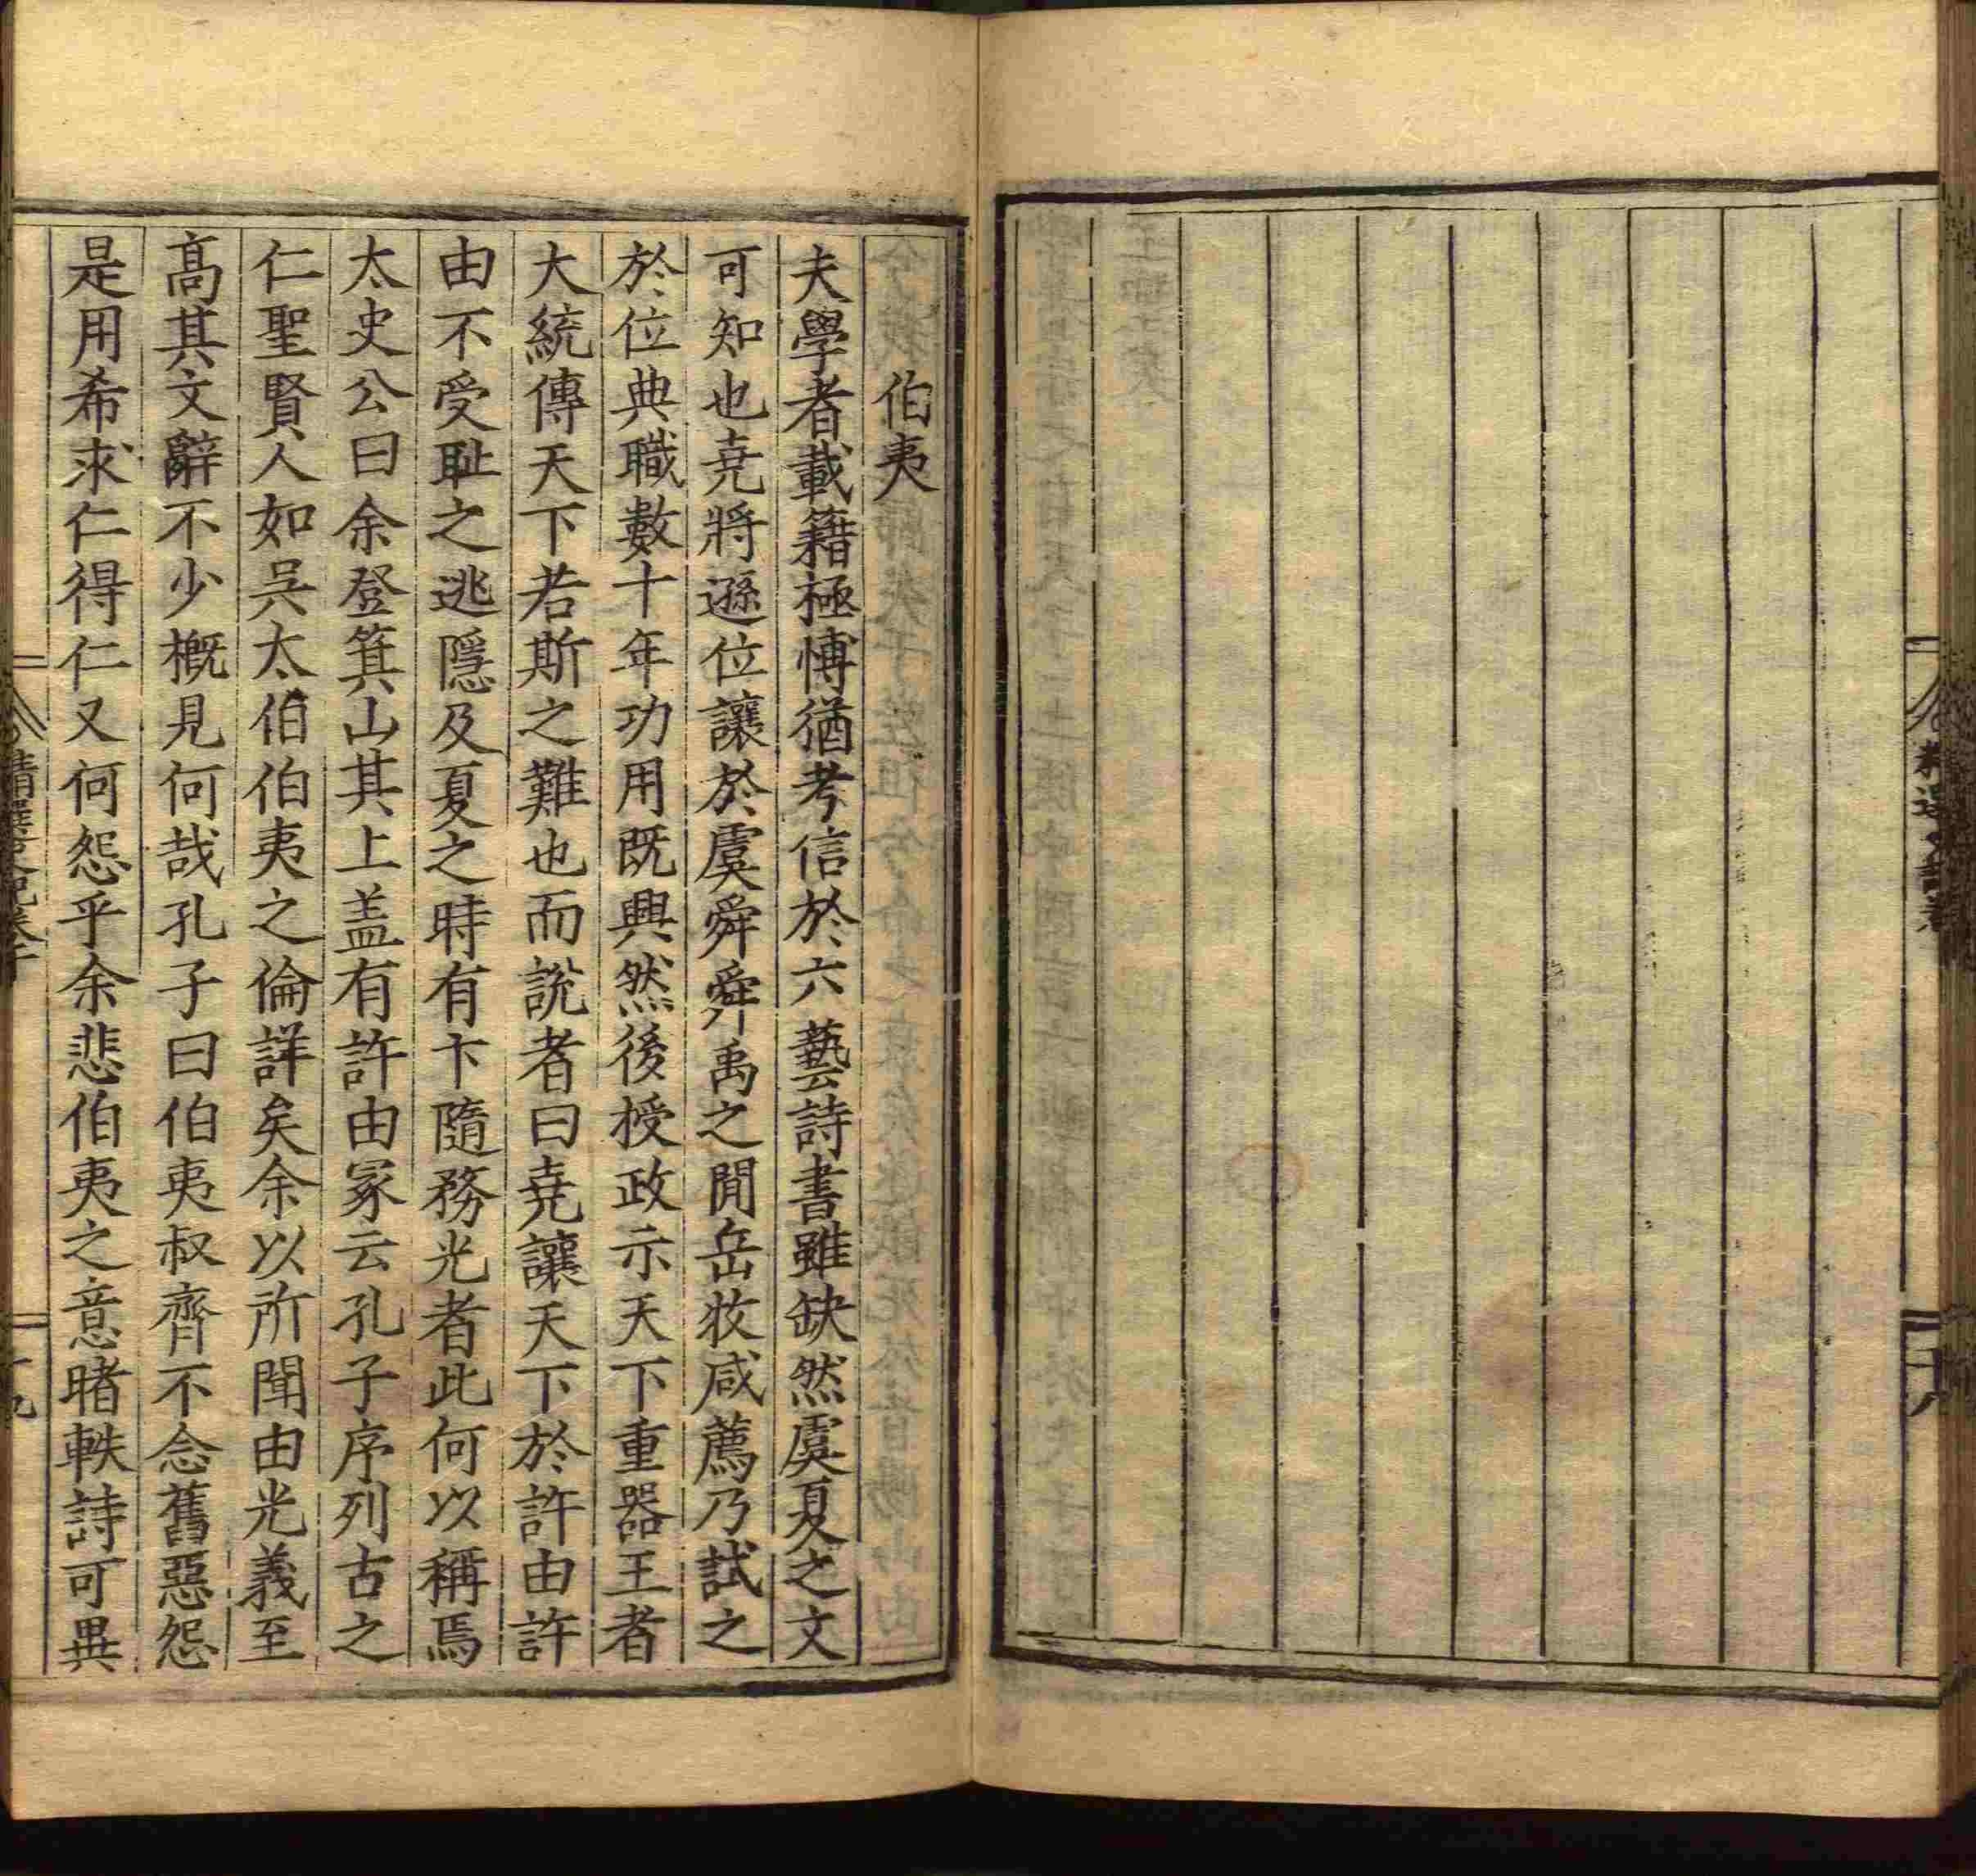 伯夷
夫學者載籍極愽猶考信於六藝詩書雖缺然虞夏之文
可知也尭將遜位讓於虞舜舜禹之閒岳牧咸薦乃試之
於位典職數十年功用既興然後授政示天下重器王者
大統傳天下若斯之難也而說者曰尭讓天下於許由許
由不受耻之逃隱及夏之時有卞隨務光者此何以稱焉
太史公曰余登箕山其上盖有許由冢云孔子序列古之
仁聖賢人如吳太伯伯夷之倫詳矣余以所聞由光義至
髙其文辭不少概見何哉孔子曰伯夷叔齊不念舊惡怨
是用希求仁得仁又何怨乎余悲伯夷之意睹軼詩可異